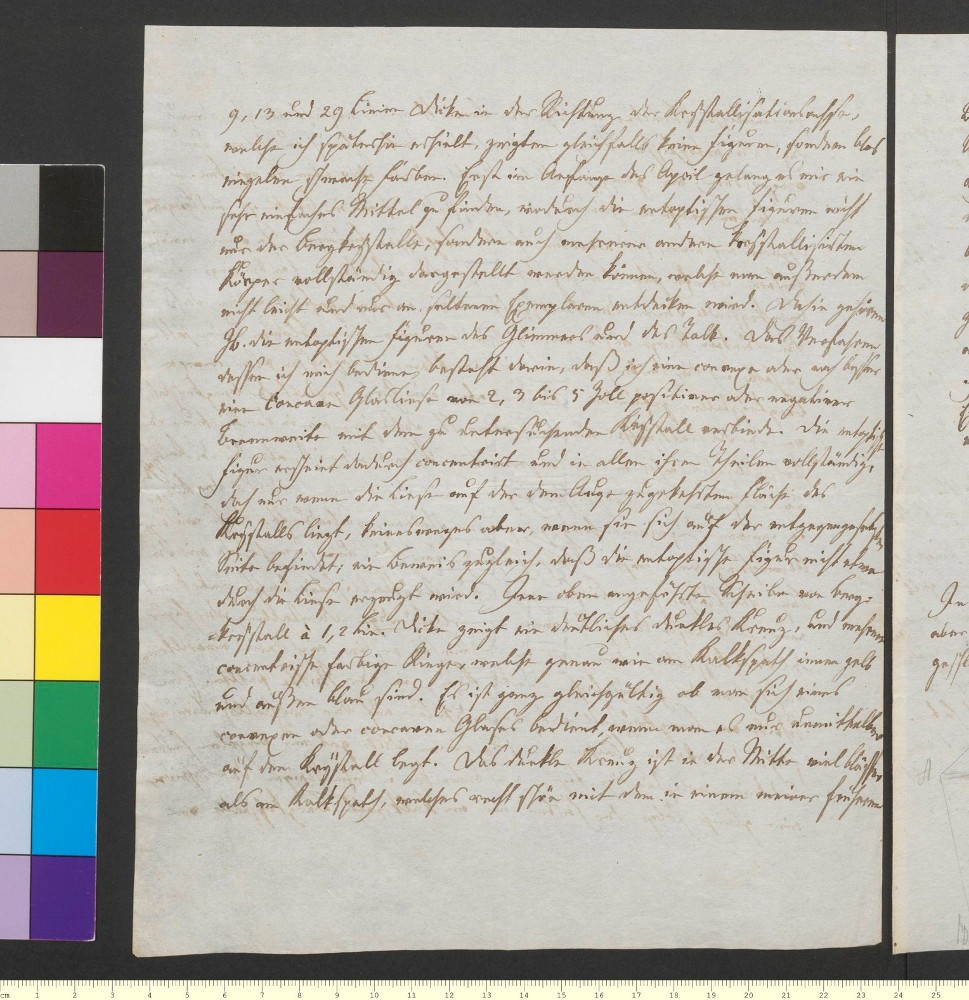 9, 13 und 29 Linien Dicke in der Richtung der Krystallisationsachse,
welche ich späterhin erhielt, zeigten gleichfalls keine Figuren, sondern blos
einzelne schwache Farben. Erst im Anfange des April gelang es mir ein
sehr einfaches Mittel zu finden, wodurch die entoptischen Figuren nicht
nur der Bergkrystalle, sondern auch mehrerer andern krystallisirten
Körper vollständig dargestellt werden können, welche man außerdem
nicht leicht und nur an seltenen Exemplaren entdecken wird. Dahin gehören
zb. die entoptischen Figuren des Glimmers und des Talk. Das Verfahren
dessen ich mich bediene, besteht darin, daß ich eine convexe oder noch besser
eine Concave Glaslinse von 2, 3 bis 5 Zoll positiver oder negativer
Brennweite mit dem zu untersuchenden Krystall verbinde. Die entoptische
Figur erscheint dadurch concentrirt und in allen ihren Theilen vollständig,
doch nur wenn die Linse auf der dem Auge zugekehrten Fläche des
Krystalls liegt, keinesweges aber, wenn sie sich auf der entgegengesetzten
Seite befindet; ein Beweis zugleich, daß die entoptische Figur nicht etwa
durch die Linse erzeugt wird. Jene oben angeführte Scheibe von Berg-
krystall à 1,2 Lin. Dicke zeigt ein deutliches dunkles Kreuz, und mehrere
concentrische farbige Ringe, welche genau wie am Kalkspath innen gelb
und außen blau sind. Es ist ganz gleichgültig ob man sich eines
convexen oder concaven Glases bedient, wenn man es nur unmittelbar
auf den Krystall legt. Das dunkle Kreuz ist in der Mitte viel blässer
als am Kalkspath, welches recht schön mit dem in einem meiner früheren
In
aber